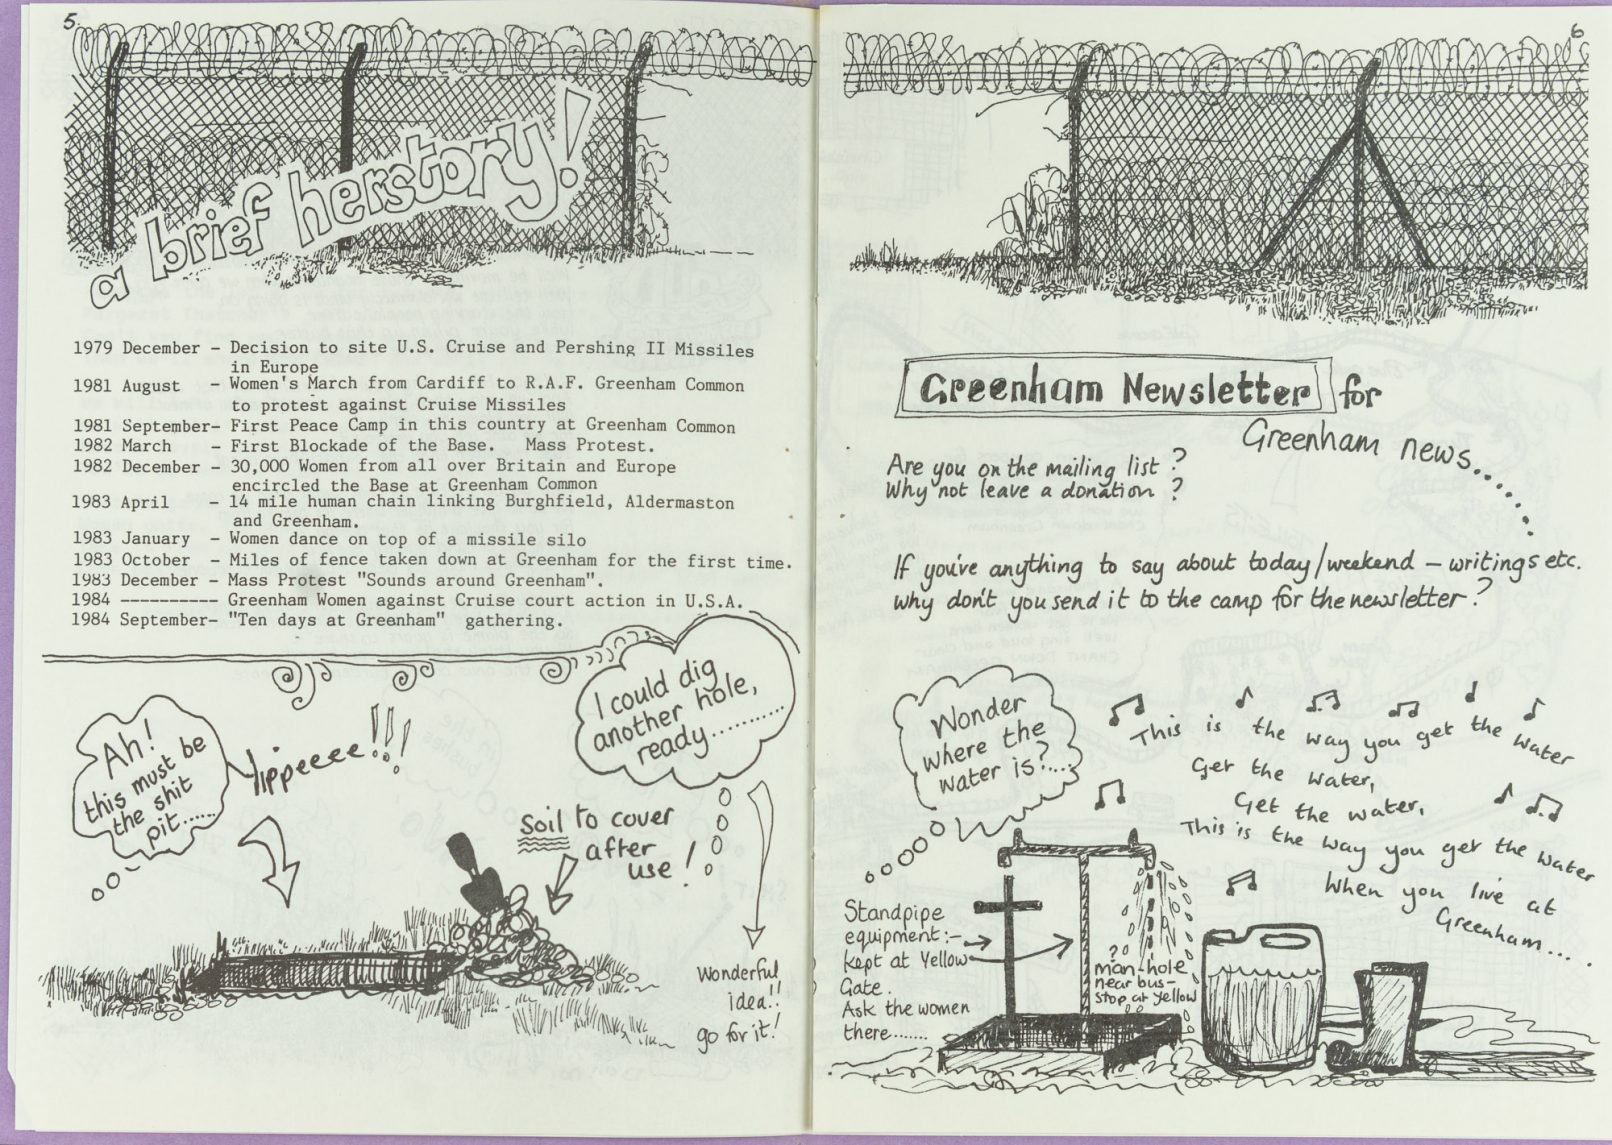 5.
a brief herstory!
1979 December - Decision to site U.S. Cruise and Pershing II Missiles
in Europe
1981 August - Women's March from Cardiff to R.A.F. Greenham Common
to protest against Cruise Missiles
1981 September- First Peace Camp in this country at Greenham Common
1982 March - First Blockade of the Base. Mass Protest.
1982 December - 30,000 Women from all over Britain and Europe
encircled the Base at Greenham Common
1983 April - 14 mile human chain linking Burghfield, Aldermaston
and Greenham.
1983 January - Women dance on top of a missile silo
1983 October - Miles of fence taken down at Greenham for the first time.
1983 December - Mass Protest "Sounds around Greenham".
1984 ---------- Greenham Women against Cruise court action in U.S.A.
1984 September- "Ten days at Greenham" gathering.
Ah!
this must be
the shit
pit......
Yippeeee!!!
I could dig
another hole,
ready..........
Soil to cover
after
use!
Wonderful
idea!!
go for it!
6
Greenham Newsletter for
Greenham news........
Are you on the mailing list?
Why not leave a donation?
If you've anything to say about today/weekend - writings etc.
why don't you send it to the camp for the newsletter?
Wonder
where the
water is?....
This is the way you get the water
Get the water,
Get the water,
This is the way you get the water
When you live at
Greenham....
Standpipe
equipment:-
kept at Yellow
Gate.
Ask the women
there.......
?
man-hole
near bus-
stop at yellow